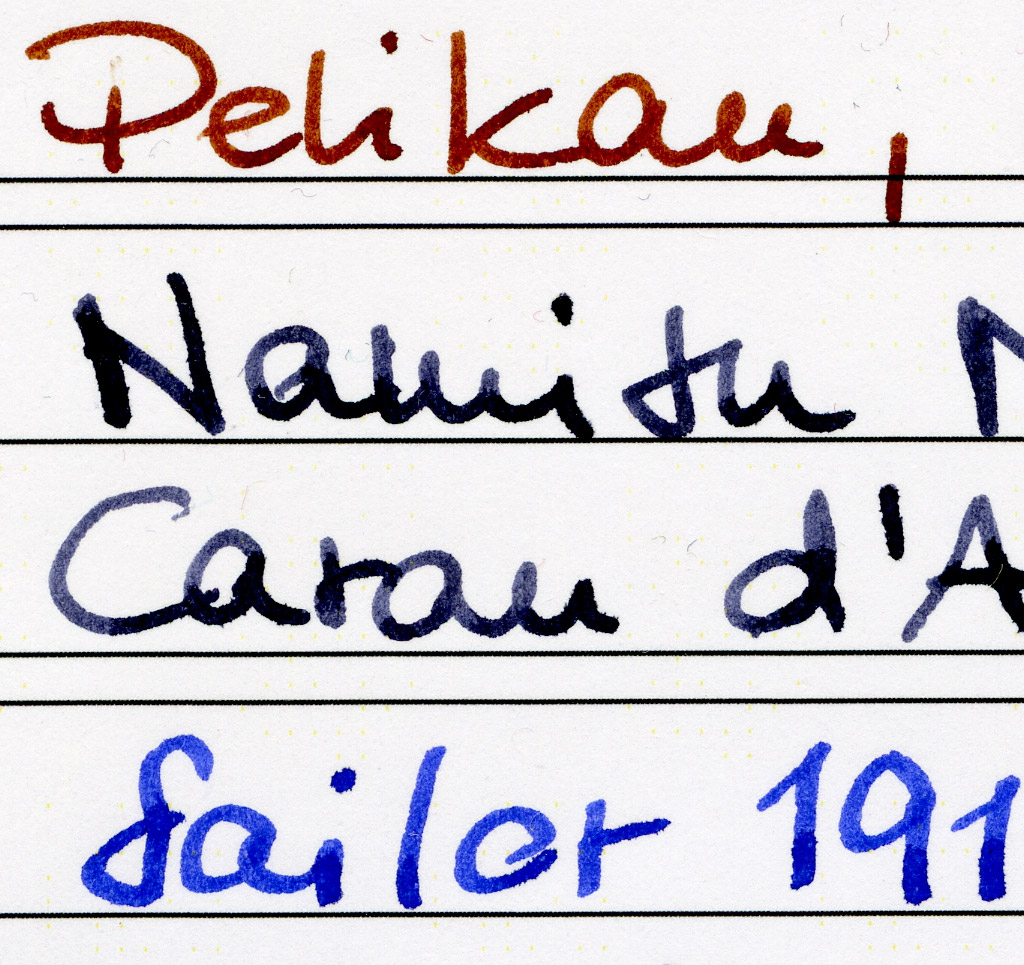 Pelikan,
Namisu N
Caran d'A
Sailor 191